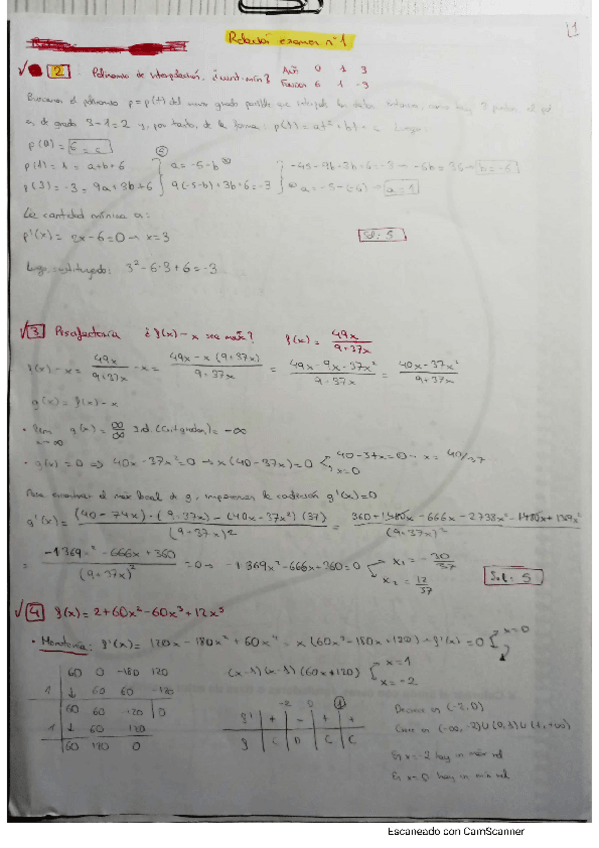 Relación examen nº1
1
2 Polinomio de interpolación, ¿cant. mín? Año 0 1 3
6 1 -3
Buscamos el polinomio p = p(t) del menor grado posible que interpola los datos. 3 puntos el pol
es de grado 3-1=2 y, por tanto, de la forma: p(t) = at² + bt + c. Luego:
p(0) = 6 = c
p(1) = 1 = a+b+6
p(3) = -3 = 9a+3b+6
a = -5-b
9(-5-b)+3b+6 = -3
-45-9b+3b+6=-3 → -6b=36 → b=-6
a = -5-(-6) → a=1
La cantidad mínima es:
p'(x) = 2x-6=0 → x=3
Sol: 5
Luego, sustituyendo: 3²-6·3+6=-3
3 Piscifactoría ¿f(x)-x sea máx? f(x) = 49x / 9+37x
f(x)-x = 49x / 9+37x - x = 49x-x(9+37x) / 9+37x = 49x-9x-37x² / 9+37x = 40x-37x² / 9+37x
g(x) = f(x)-x
• lim x→∞ g(x) = ∞/∞ Ind. (Cmp. grados) = -∞
• g(x) = 0 ⇒ 40x-37x²=0 → x(40-37x)=0 40-37x=0 → x = 40/37
x=0
Para encontrar el máx local de g, imponemos la condición g'(x)=0
g'(x) = (40-74x)·(9+37x)-(40x-37x²)(37) / (9+37x)² = 360+1480x-666x-2738x²-1480x+1369x² / (9+37x)²
= -1369x²-666x+360 / (9+37x)² = 0 → -1369x²-666x+360=0 x₁ = -30/37
x₂ = 12/37
Sol: 5
4 f(x) = 2+60x²-60x³+12x⁵
• Monotonía: f'(x) = 120x-180x²+60x⁴ = x(60x³-180x+120) → f'(x)=0 x=0
60 0 -180 120
1 ↓ 60 60 -120
60 60 -120 0
1 ↓ 60 120
60 120 0
(x-1)(x-1)(60x+120) x=1
x=-2
-2 0 1
f' + - + +
f C D C C
Decrece en (-2,0)
Crece en (-∞,-2)∪(0,1)∪(1,+∞)
En x=-2 hay un máx rel
En x=0 hay un mín rel
Escaneado con CamScanner